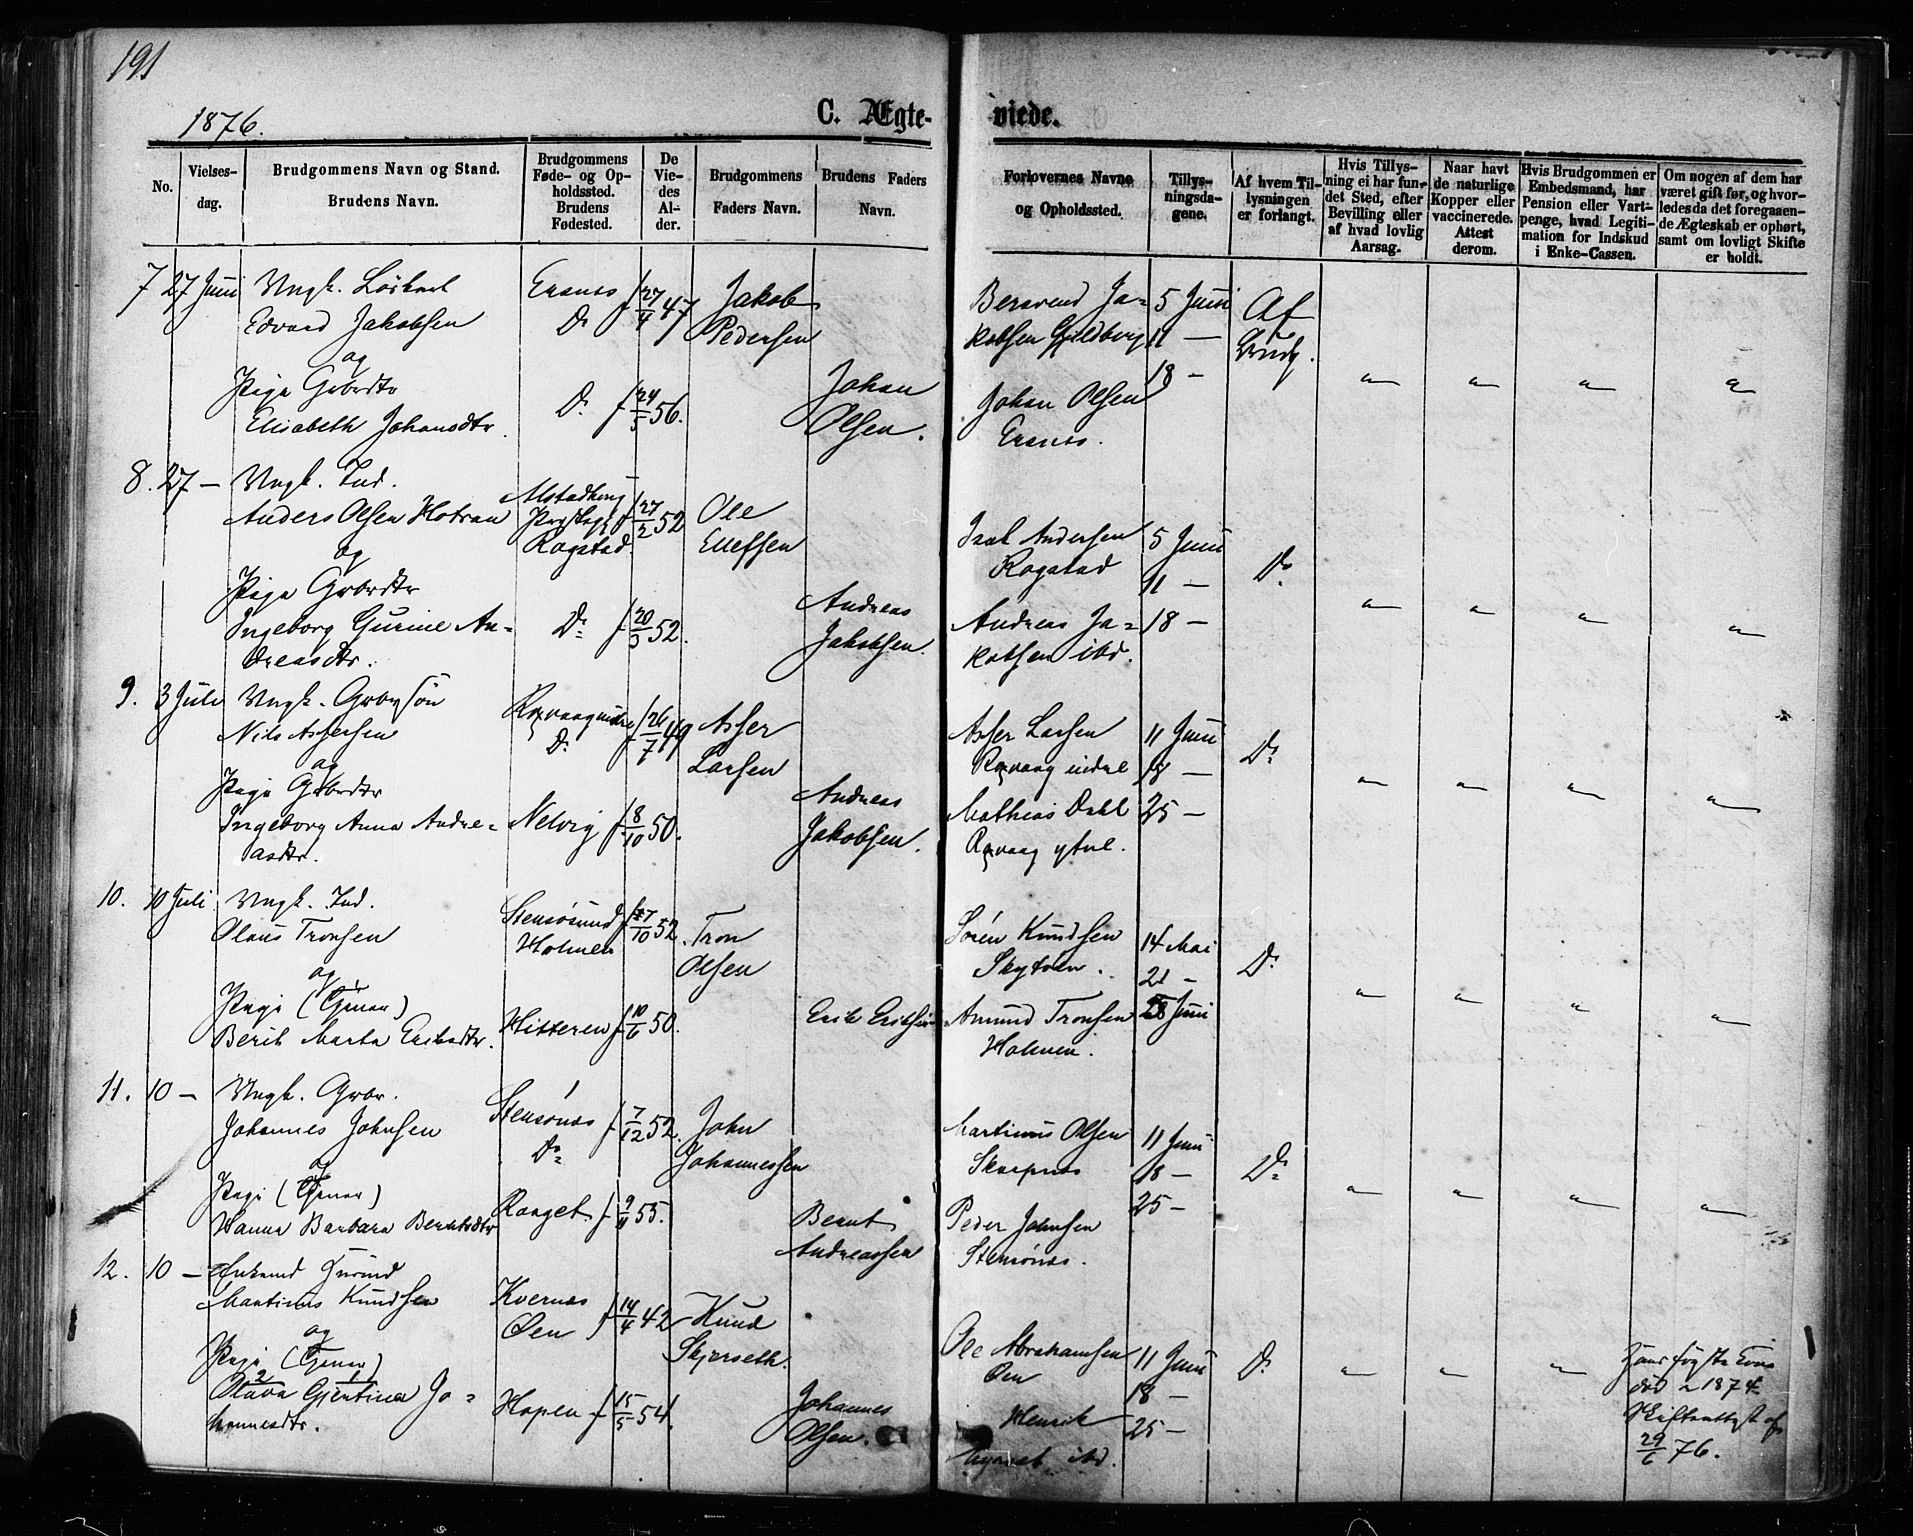 191
1876.
C. Ægte-
viede.
No.
Vielses-
dag.
Brudgommens Navn og Stand.
Brudens Navn.
Brudgommens
Føde- og Op-
holdssted.
Brudens
Fødested.
De
Vie-
des
Al-
der.
Brudgommens
Faders Navn.
Brudens Faders
Navn.
Forlovernes Navne
og Opholdssted.
Tillys-
ningsda-
gene.
Af hvem Til-
lysningen
er forlangt.
Hvis Tillys-
ning ei har fun-
det Sted, efter
Bevilling eller
af hvad lovlig
Aarsag.
Naar havt
de naturlige
Kopper eller
vaccinerede.
Attest
derom.
Hvis Brudgommen er
Embedsmand, har
Pension eller Vart-
penge, hvad Legiti-
mation for Indskud
i Enke-Cassen.
Om nogen af dem har
været gift før, og hvor-
ledes da det foregaaen-
de Ægteskab er ophørt,
samt om lovligt Skifte
er holdt.
7 27 Juni Ungk.
Edvard Jakobsen
og
Pige Grbrdtr
Elisabeth Johansdtr.
D:
f 27/4 47
D: f 24/5 56.
Jakob
Pedersen
Johan
Olsen.
Ja-
kobsen
Johan Olsen
5 Juni
11 —
18 —
Af
Brudg.
8. 27 — Ungk. Ind.
Anders Olsen Hotran
og
Pige Grbrdtr
Ingeborg Gurine An-
dreasdtr.
Rogstad.
f 27/2 52
D: f 20/3 52.
Ole
Ellefsen
Andreas
Jakobsen.
Isak Andersen
Rogstad
Andreas Ja-
kobsen ibd.
5 Juni
11 —
18 —
D:
9. 3 Juli Ungk. Grbrsøn
Nils Assersen
og
Pige Grbrdtr
Ingeborg Anna Andre-
asdtr.
D:
f 26/7 49
Nelvig f 8/10 50.
Asser
Larsen
Andreas
Jakobsen.
Asser Larsen
Røsvaag indre
Mathias Dahl
Røsvaag ytre.
11 Juni
18 —
25 —
D:
10. 10 Juli Ungk. Ind.
Olaus Tronsen
og
Pige (Tjener)
Berit Marta Eriksdtr.
Stensøsund
Holmen
f 17/10 52
Hitteren f 10/6 50.
Tron
Olsen
Erik Eriksen
Søren Knudsen
Amund Tronsen
Holmen.
14 Mai
21 —
Juni
D:
11. 10 — Ungk. Grbr.
Johannes Johnsen
og
Pige (Tjener)
Hanna Barbara Berntsdtr
Stensønes
D:
f 7/12 52.
f 9/11 55.
John
Johannessen
Bernt
Andreassen
Martinus Olsen
Skarpnes
Peder Johnsen
Stensønes.
11 Juni
18 —
25 —
D:
12. 10 — Enkemd
Martinus Knudsen
og
Pige (Tjener)
Olava Gjertina Jo-
hannesdtr.
Kvernes
Øen
f 14/4 42
Hopen f 15/5 54.
Knud
Skjerseth.
Johannes
Olsen.
Ole Abrahamsen
Øen
Henrik
ibd.
11 Juni
18 —
25 —
D:
Hans første Kone
død 1874.
Skifteattest af
29/6 76.